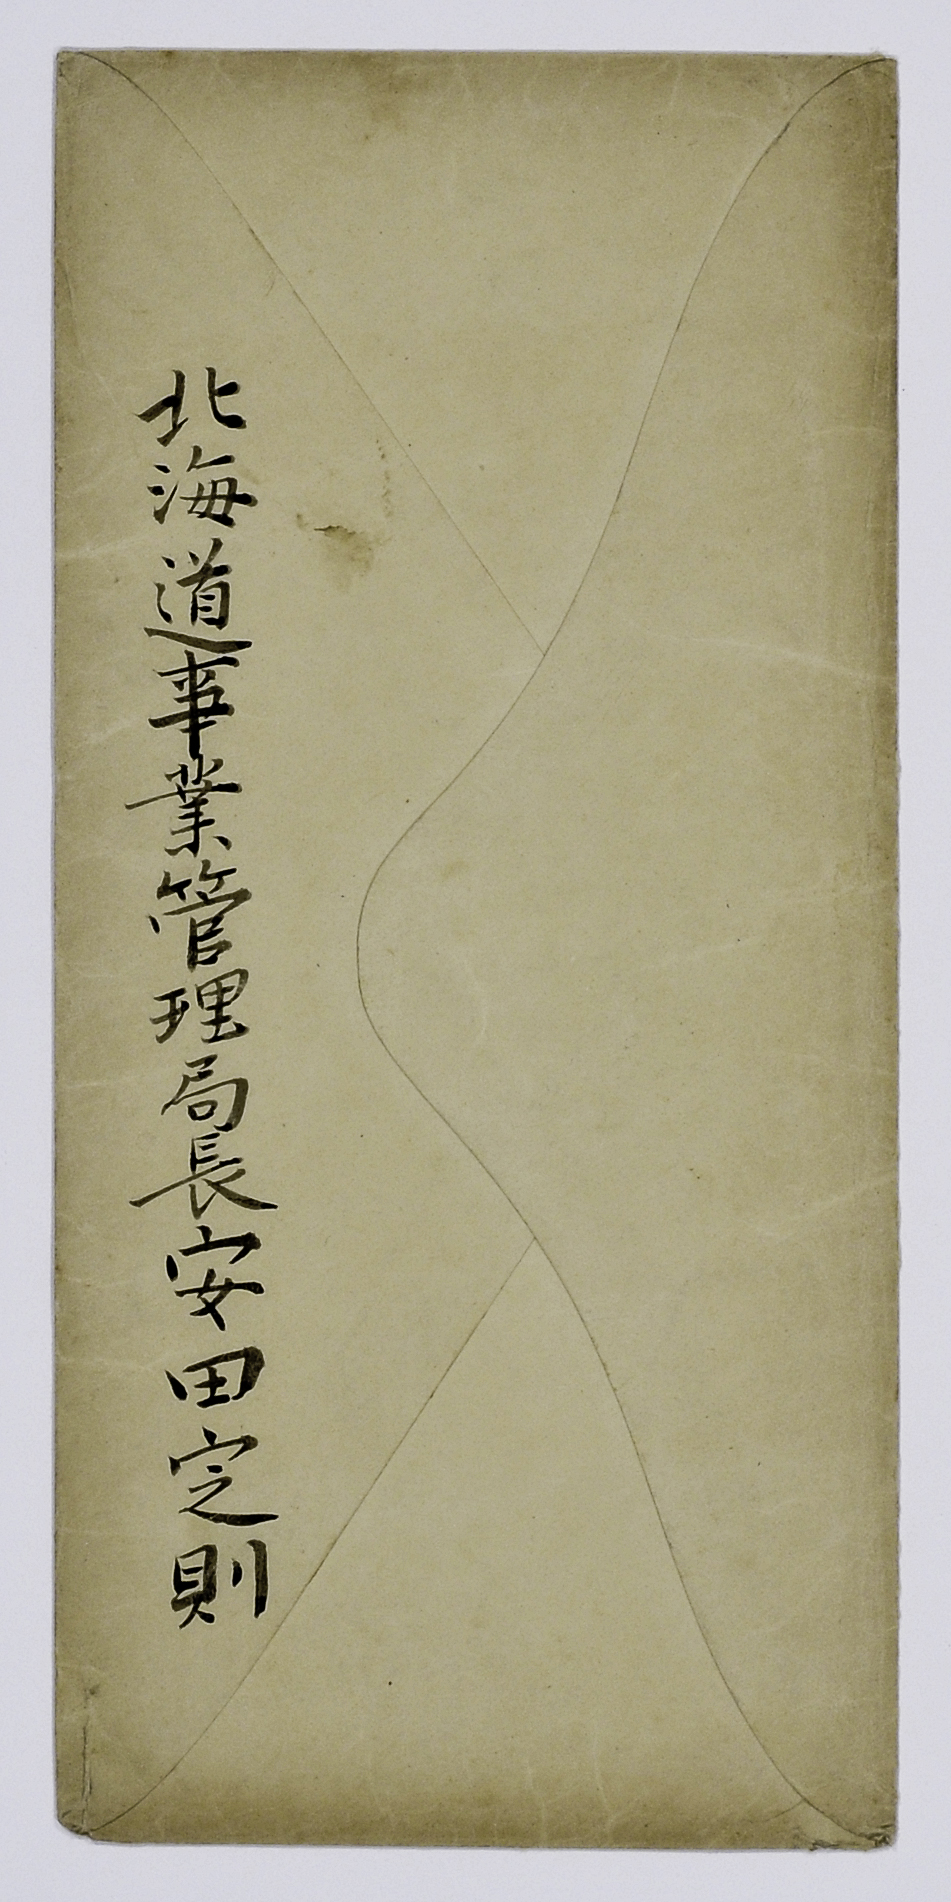 北海道事業管理局長安田定則